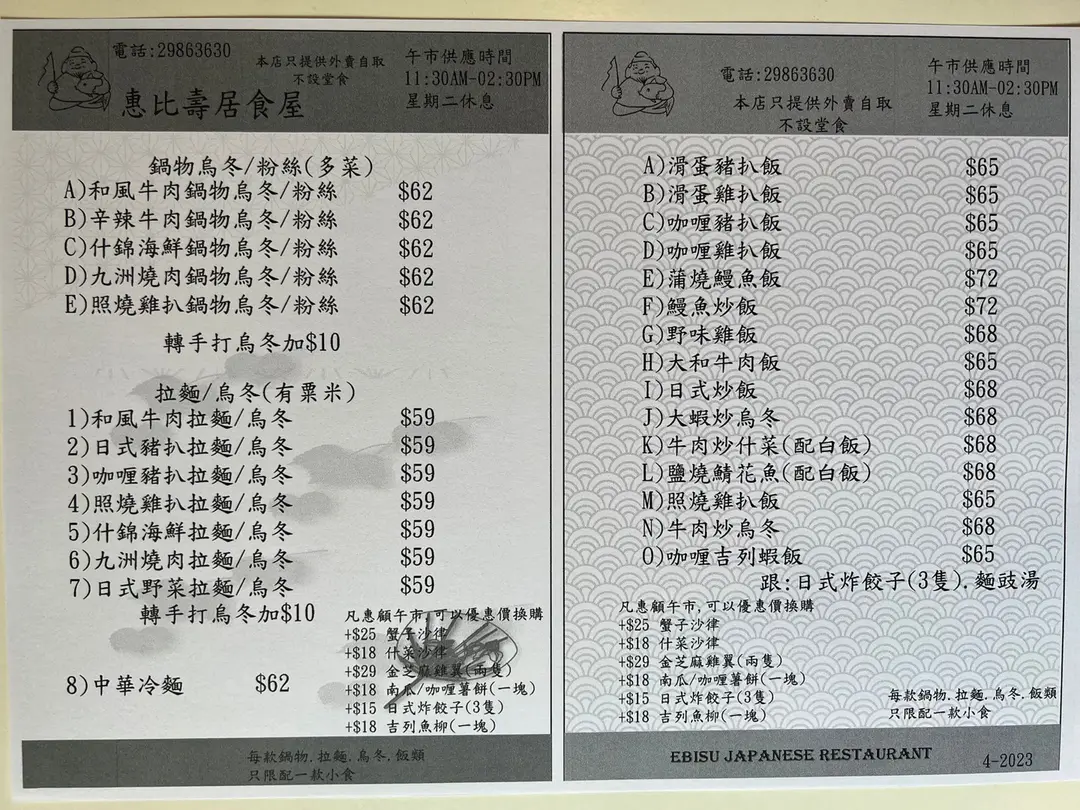 電話:29863630
本店只提供外賣自取
不設堂食
午市供應時間
11:30AM-02:30PM
星期二休息
惠比壽居食屋
鍋物烏冬/粉絲(多菜)
A)和風牛肉鍋物烏冬/粉絲 $62
B)辛辣牛肉鍋物烏冬/粉絲 $62
C)什錦海鮮鍋物烏冬/粉絲 $62
D)九洲燒肉鍋物烏冬/粉絲 $62
E)照燒雞扒鍋物烏冬/粉絲 $62
轉手打烏冬加$10
拉麵/烏冬(有粟米)
1)和風牛肉拉麵/烏冬 $59
2)日式豬扒拉麵/烏冬 $59
3)咖喱豬扒拉麵/烏冬 $59
4)照燒雞扒拉麵/烏冬 $59
5)什錦海鮮拉麵/烏冬 $59
6)九洲燒肉拉麵/烏冬 $59
7)日式野菜拉麵/烏冬 $59
轉手打烏冬加$10
8)中華冷麵 $62
凡惠顧午市,可以優惠價換購
+$25 蟹子沙律
+$18 什菜沙律
+$29 金芝麻雞翼(兩隻)
+$18 南瓜/咖喱薯餅(一塊)
+$15 日式炸餃子(3隻)
+$18 吉列魚柳(一塊)
每款鍋物.拉麵.烏冬.飯類
只限配一款小食
電話:29863630
本店只提供外賣自取
不設堂食
午市供應時間
11:30AM-02:30PM
星期二休息
A)滑蛋豬扒飯 $65
B)滑蛋雞扒飯 $65
C)咖喱豬扒飯 $65
D)咖喱雞扒飯 $65
E)蒲燒鰻魚飯 $72
F)鰻魚炒飯 $72
G)野味雞飯 $68
H)大和牛肉飯 $65
I)日式炒飯 $68
J)大蝦炒烏冬 $68
K)牛肉炒什菜(配白飯) $68
L)鹽燒鯖花魚(配白飯) $68
M)照燒雞扒飯 $65
N)牛肉炒烏冬 $68
O)咖喱吉列蝦飯 $65
跟:日式炸餃子(3隻).麵豉湯
凡惠顧午市,可以優惠價換購
+$25 蟹子沙律
+$18 什菜沙律
+$29 金芝麻雞翼(兩隻)
+$18 南瓜/咖喱薯餅(一塊)
+$15 日式炸餃子(3隻)
+$18 吉列魚柳(一塊)
每款鍋物.拉麵.烏冬.飯類
只限配一款小食
EBISU JAPANESE RESTAURANT
4-2023